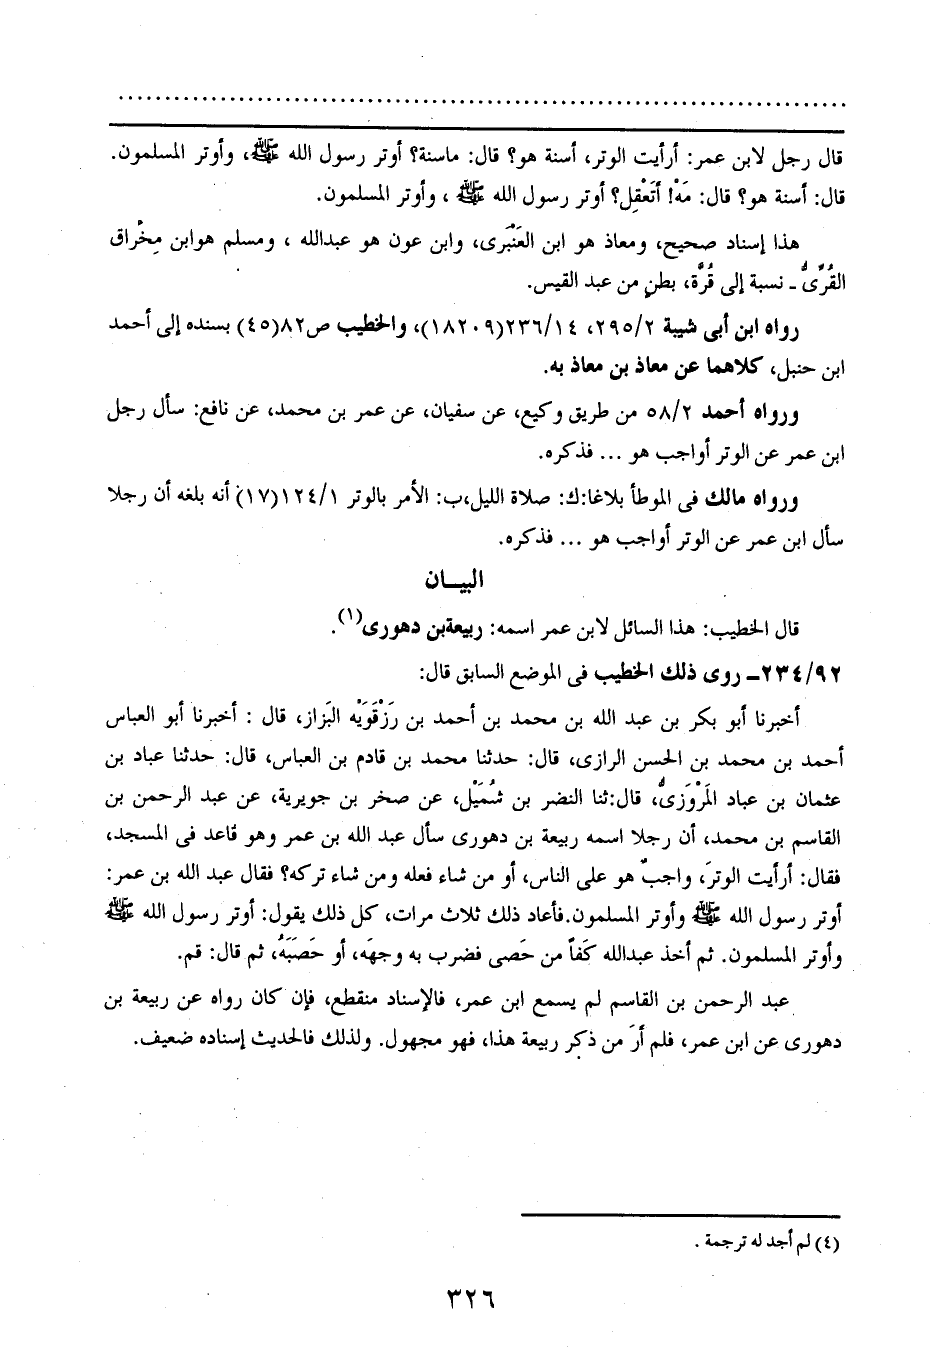 قال رجل لابن عمر: أرأيت الوتر، أسنة هو؟ قال: ماسنة؟ أوتر رسول الله ﷺ، وأوتر المسلمون.
قال: أسنة هو؟ قال: مَهْ! أتَعْقِل؟ أوتر رسول الله ﷺ ، وأوتر المسلمون.
هذا إسناد صحيح، ومعاذ هو ابن العَنْبَرى، وابن عون هو عبدالله ، ومسلم هوابن مِخْراق
القُرِّىُّ ـ نسبة إلى قُرَّة، بطن من عبد القيس.
رواه ابن أبى شيبة ٢٩٥/٢، ٢٣٦/١٤(١٨٢٠٩)، والخطيب ص٨٢(٤٥) بسنده إلى أحمد
ابن حنبل، كلاهما عن معاذ بن معاذ به.
ورواه أحمد ٥٨/٢ من طريق وكيع، عن سفيان، عن عمر بن محمد، عن نافع: سأل رجل
ابن عمر عن الوتر أواجب هو ... فذكره.
ورواه مالك فى الموطأ بلاغا:ك: صلاة الليل،ب: الأمر بالوتر ١٢٤/١(١٧) أنه بلغه أن رجلا
سأل ابن عمر عن الوتر أواجب هو ... فذكره.
البيـــان
قال الخطيب: هذا السائل لابن عمر اسمه: ربيعةبن دهورى(١).
٢٣٤/٩٢ـ روى ذلك الخطيب فى الموضع السابق قال:
أخبرنا أبو بكر بن عبد الله بن محمد بن أحمد بن رَزْقَوَيْه البَزاز، قال : أخبرنا أبو العباس
أحمد بن محمد بن الحسن الرازى، قال: حدثنا محمد بن قادم بن العباس، قال: حدثنا عباد بن
عثمان بن عباد المَرْوَزىُّ، قال:ثنا النضر بن شُمَيْل، عن صخر بن جويرية، عن عبد الرحمن بن
القاسم بن محمد، أن رجلا اسمه ربيعة بن دهورى سأل عبد الله بن عمر وهو قاعد فى المسجد،
فقال: أرأيت الوترَ، واجبٌ هو على الناس، أو من شاء فعله ومن شاء تركه؟ فقال عبد الله بن عمر:
أوتر رسول الله ﷺ وأوتر المسلمون.فأعاد ذلك ثلاث مرات، كل ذلك يقول: أوتر رسول الله ﷺ
وأوتر المسلمون. ثم أخذ عبدالله كَفاً من حَصى فضرب به وجهَه، أو حَصَبَهُ، ثم قال: قم.
عبد الرحمن بن القاسم لم يسمع ابن عمر، فالإسناد منقطع، فإن كان رواه عن ربيعة بن
دهورى عن ابن عمر، فلم أرَ من ذكر ربيعة هذا، فهو مجهول. ولذلك فالحديث إسناده ضعيف.
(٤) لم أجد له ترجمة .
٣٢٦